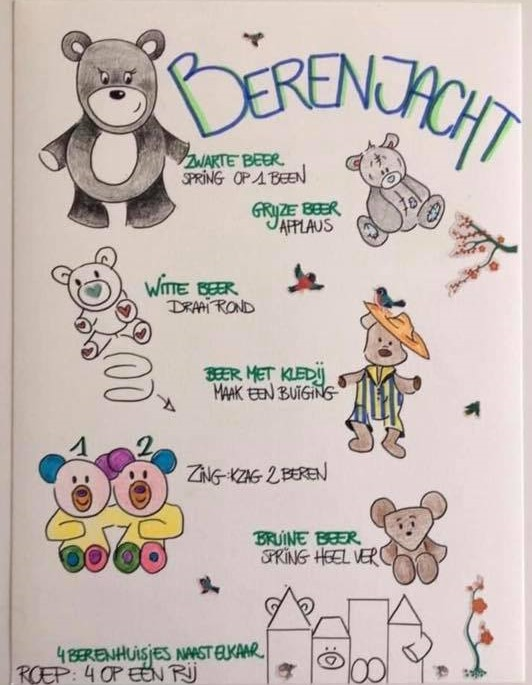 BERENJACHT
ZWARTE BEER
SPRING OP 1 BEEN
GRIJZE BEER
APPLAUS
WITTE BEER
DRAAI ROND
BEER MET KLEDIJ
MAAK EEN BUIGING
1 2
ZING: KZAG 2 BEREN
BRUINE BEER
SPRING HEEL VER
4 BERENHUISJES NAAST ELKAAR
ROEP: 4 OP EEN RIJ